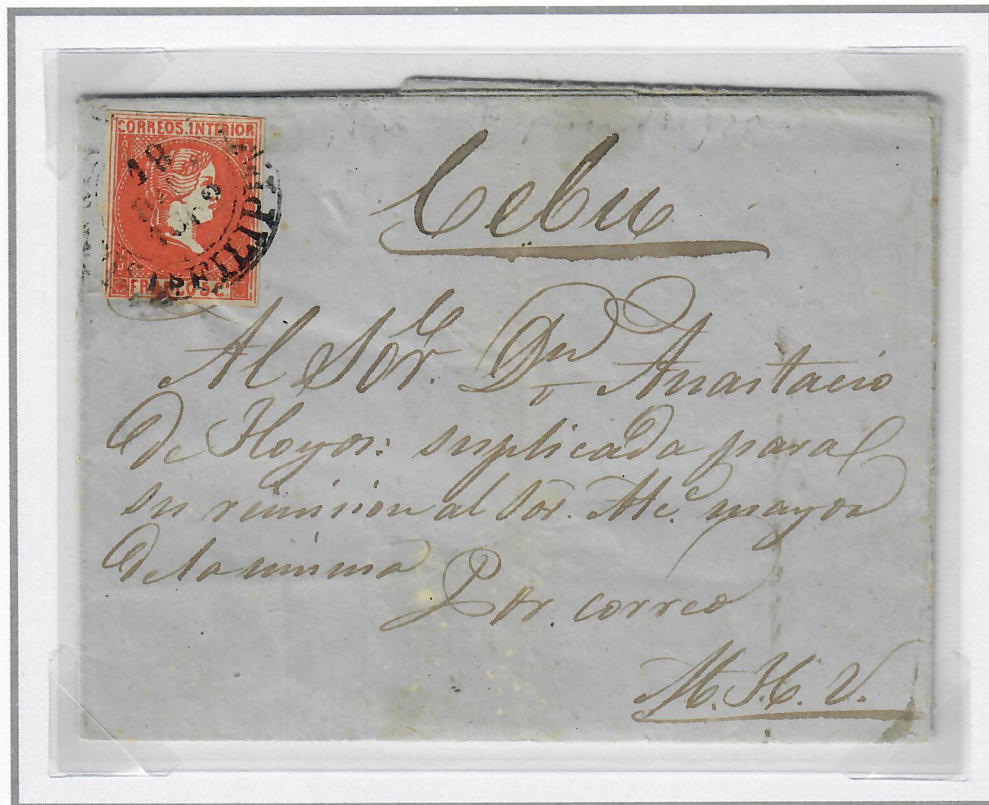 CORREOS. INTERIOR
18
FILIP
FRANCO 5 C
Cebu
Al Sor. Dn Anastacio
de Hoyos: suplicada para
su remision al Sor. Alc. mayor
de la misma
Por. correo
M. H. V.